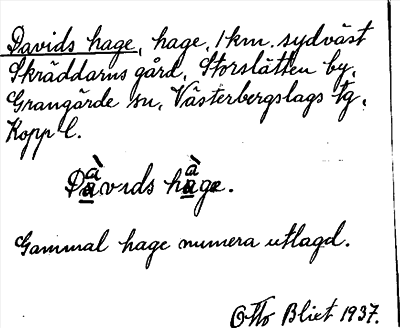 Davids hage, hage, 1 km. sydväst
Skräddarns gård, Storslätten by,
Grangärde sn, Västerbergslags tg,
Kopp l.
Dàvids hàge.
Gammal hage numera utlagd.
Otto Blixt 1937.